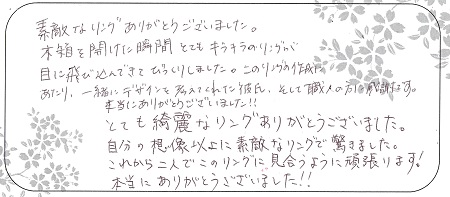 素敵なリングありがとうございました。
木箱を開けた瞬間とてもキラキラのリングが
目に飛び込んできてびっくりしました。このリングの作成に
あたり、一緒にデザインを考えてくれた彼氏、そして職人の方に感謝です。
本当にありがとうございました!!
とても綺麗なリングありがとうございました。
自分の想像以上に素敵なリングで驚きました。
これから二人でこのリングに見合うように頑張ります!
本当にありがとうございました!!